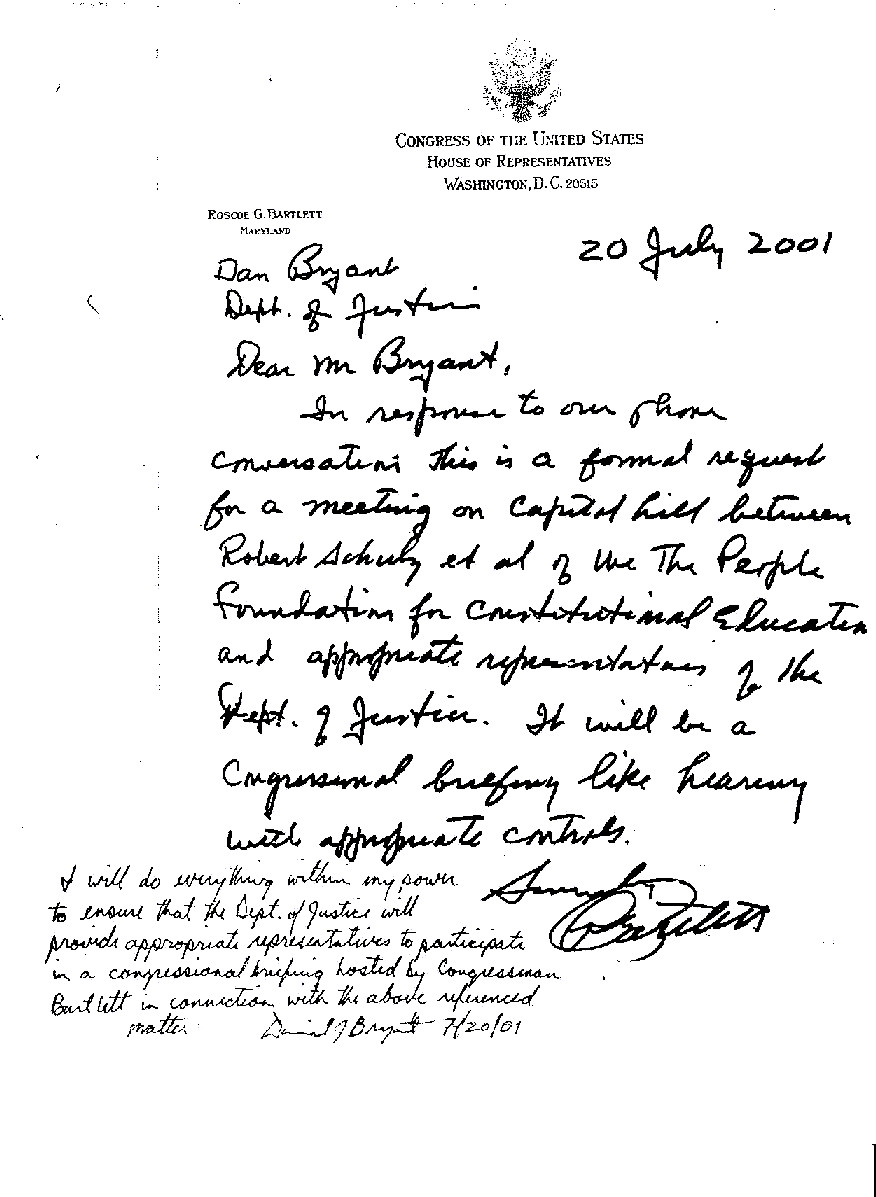 CONGRESS OF THE UNITED STATES
HOUSE OF REPRESENTATIVES
WASHINGTON, D.C. 20515
ROSCOE G. BARTLETT
MARYLAND
20 July 2001
Dan Bryant
Dept. of Justice
Dear Mr Bryant,
In response to our phone
conversation this is a formal request
for a meeting on Capitol hill between
Robert Schulz et al of We The People
Foundation for Constitutional Education
and appropriate representatives of the
Dept. of Justice. It will be a
Congressional briefing like hearing
with appropriate controls.
Sincerely
RBartlett
I will do everything within my power
to ensure that the Dept. of Justice will
provide appropriate representatives to participate
in a congressional briefing hosted by Congressman
Bartlett in connection with the above referenced
matter. Daniel J Bryant 7/20/01